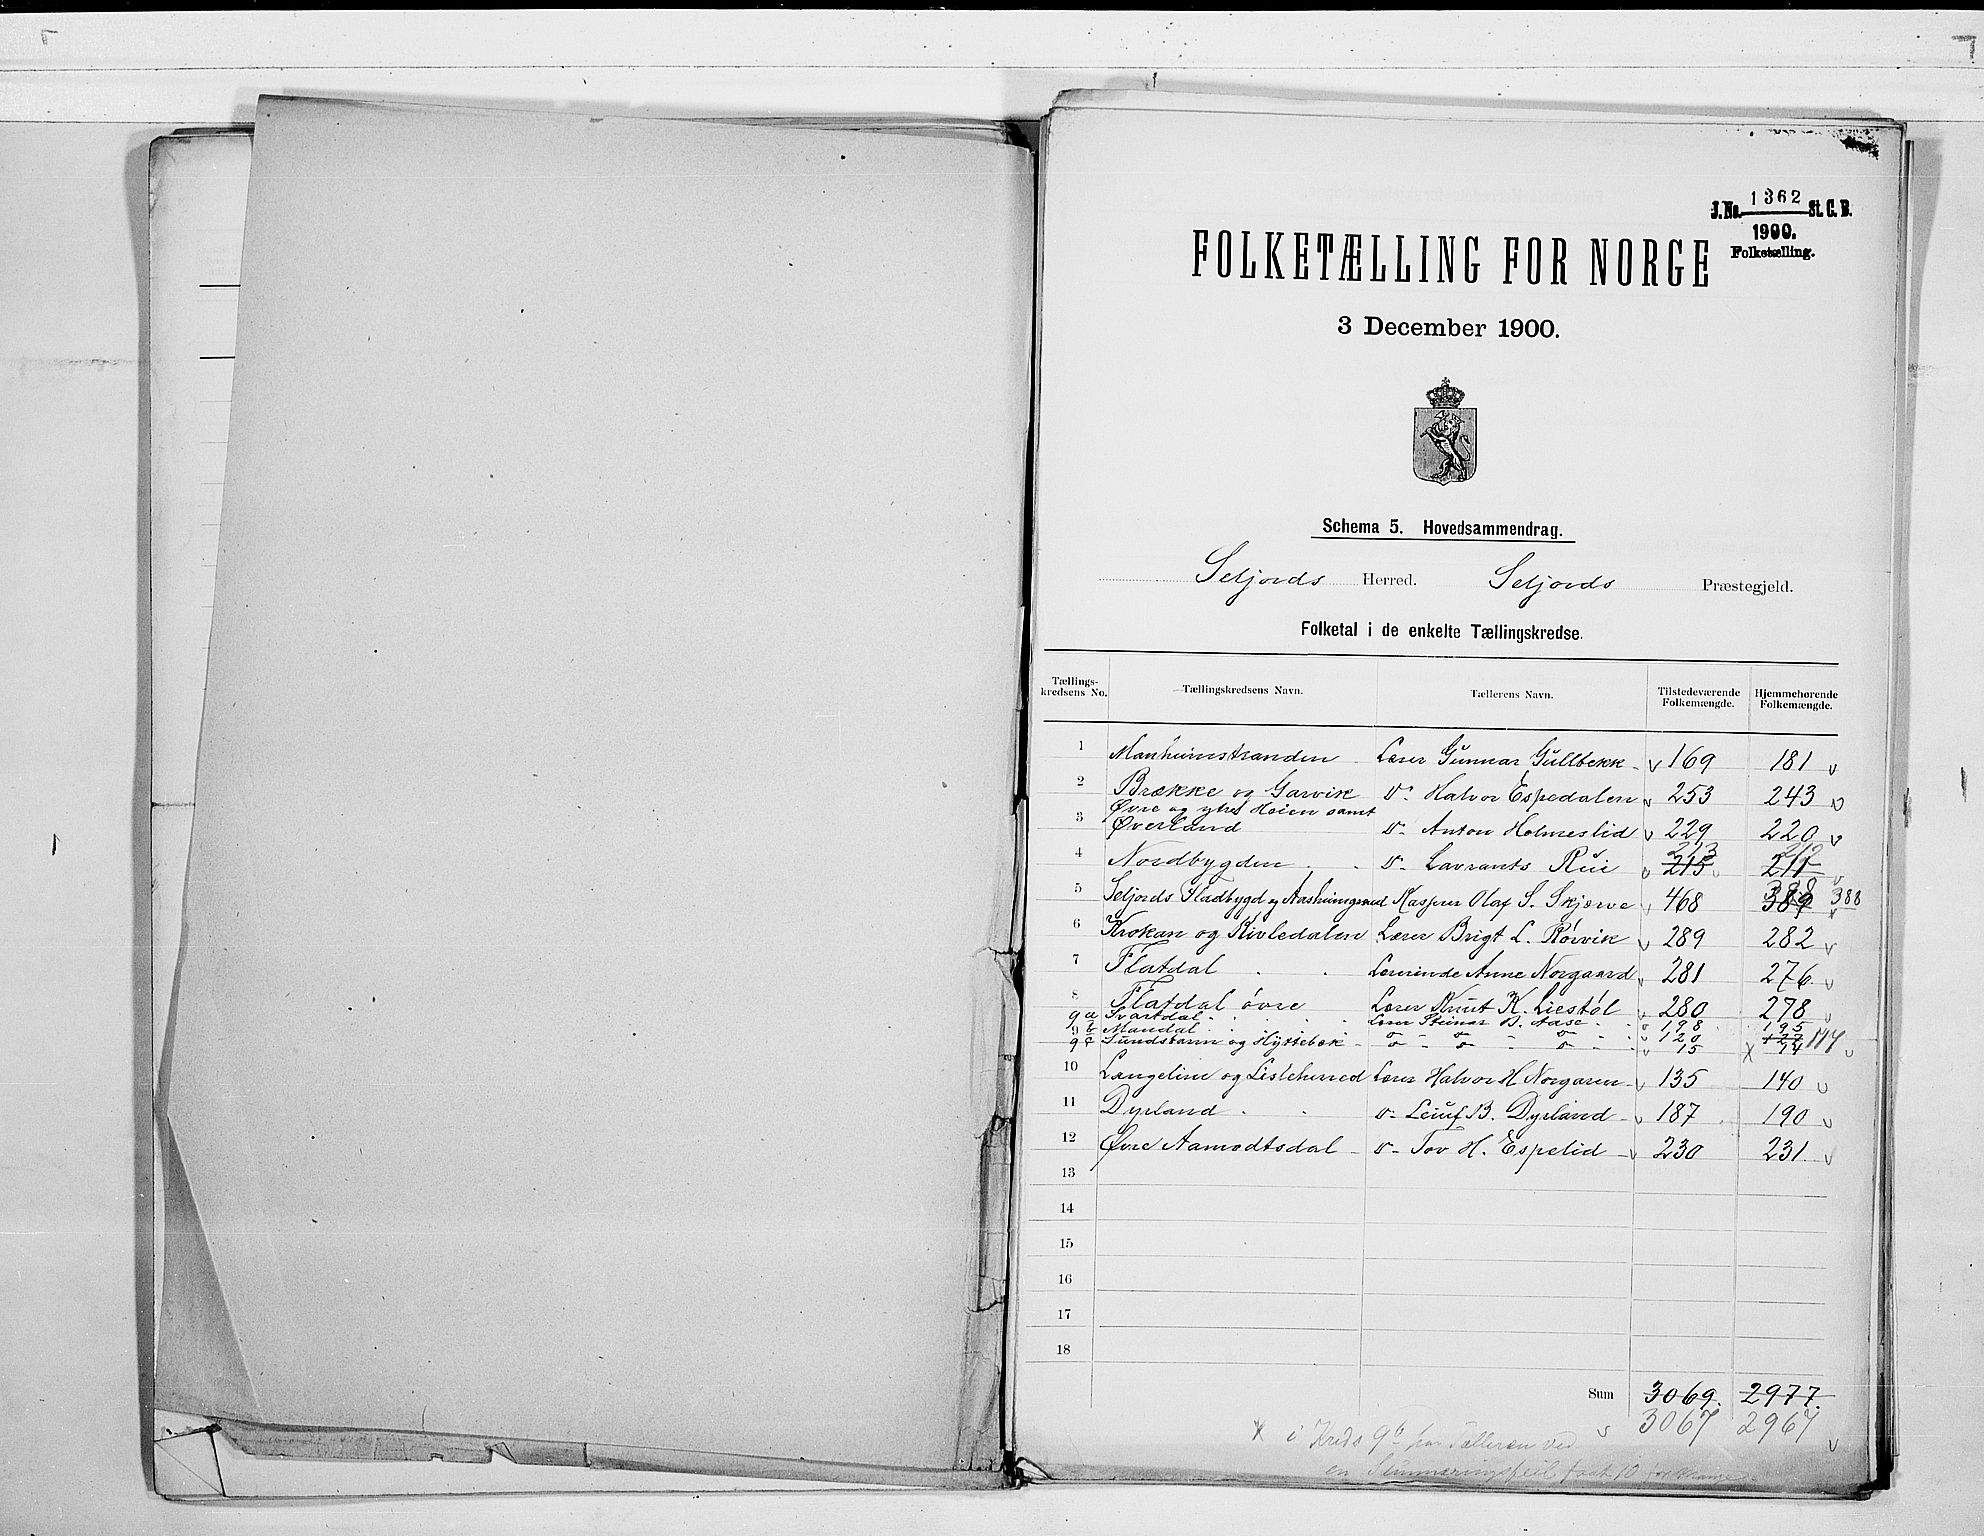 J. No. 1362 St. C. B.
1900.
Folketælling.
FOLKETÆLLING FOR NORGE
3 December 1900.
Schema 5. Hovedsammendrag.
Seljords Herred. Seljords Præstegjeld.
Folketal i de enkelte Tællingskredse.
Tællings-kredsens No. Tællingskredsens Navn. Tællerens Navn. Tilstedeværende Folkemængde. Hjemmehørende Folkemængde.
1 Manheimstranden Lærer Gunnar Gullbekk 169 181
2 Brække og Garvik D. Halvor Espedalen 253 243
Øvre og ytre Heien samt
3 Øverland D. Anton Holmeslid 229 220
213 212
4 Nordbygden D. Lavrants Rui 215 211
5 Seljords Fladbygd og Kasper Olaf S. Skjørve 468 389 388
6 Krokan og Kivledalen Lærer Brigt L. Rörvik 289 282
7 Flatdal Lærerinde Anne Norgaard 281 276
8 Flatdal övre Lærer Knut K. Liestöl 280 278
9 a Svartdal Lærer Steinar B. Aase 198 195
9 b Mandal 120 127 117
9 c Sundsbarm og Hyttebæk 15 14
10 Langelim og Lisleherred Lærer Halvor H Norgaren 135 140
11 Dyrland D. Leiuf B. Dyrland 187 190
12 Øvre Aamodtsdal D. Tov H. Espelid 230 231
13
14
15
16
17
18
Sum 3069. 2977.
3067 2967
x i Kreds 9b har Tælleren ved
en Summeringsfeil faat 10 for mange